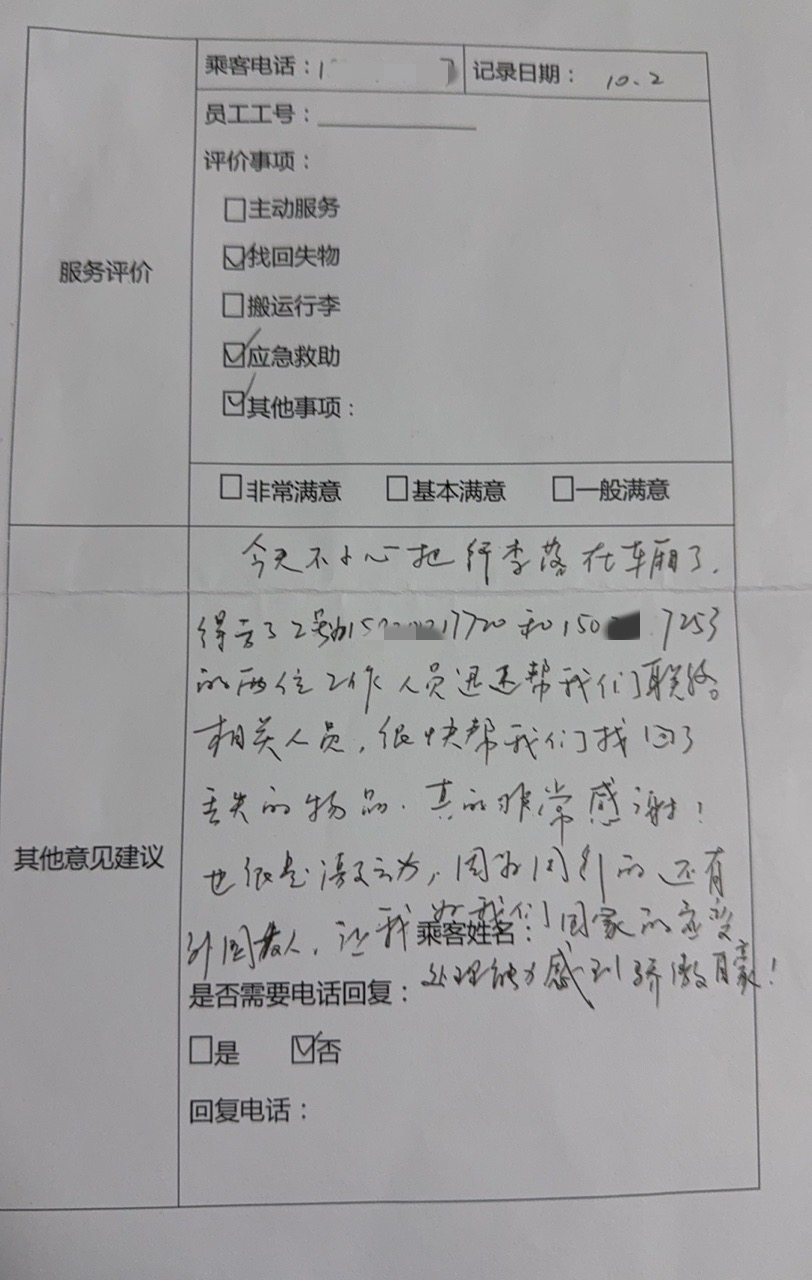 乘客电话：1
记录日期： 10.2
员工工号：
评价事项：
主动服务
找回失物
搬运行李
应急救助
其他事项：
服务评价
非常满意 基本满意 一般满意
今天不小心把行李落在车厢了.
17720和150 7253
的两位工作人员迅速帮我们联络
相关人员,很快帮我们找回了
丢失的物品.真的非常感谢!
其他意见建议
也很是激动,因为同行的还有
外国友人,让我为我们国家的应变
乘客姓名：
处理能力感到骄傲自豪!
是否需要电话回复：
是 否
回复电话：